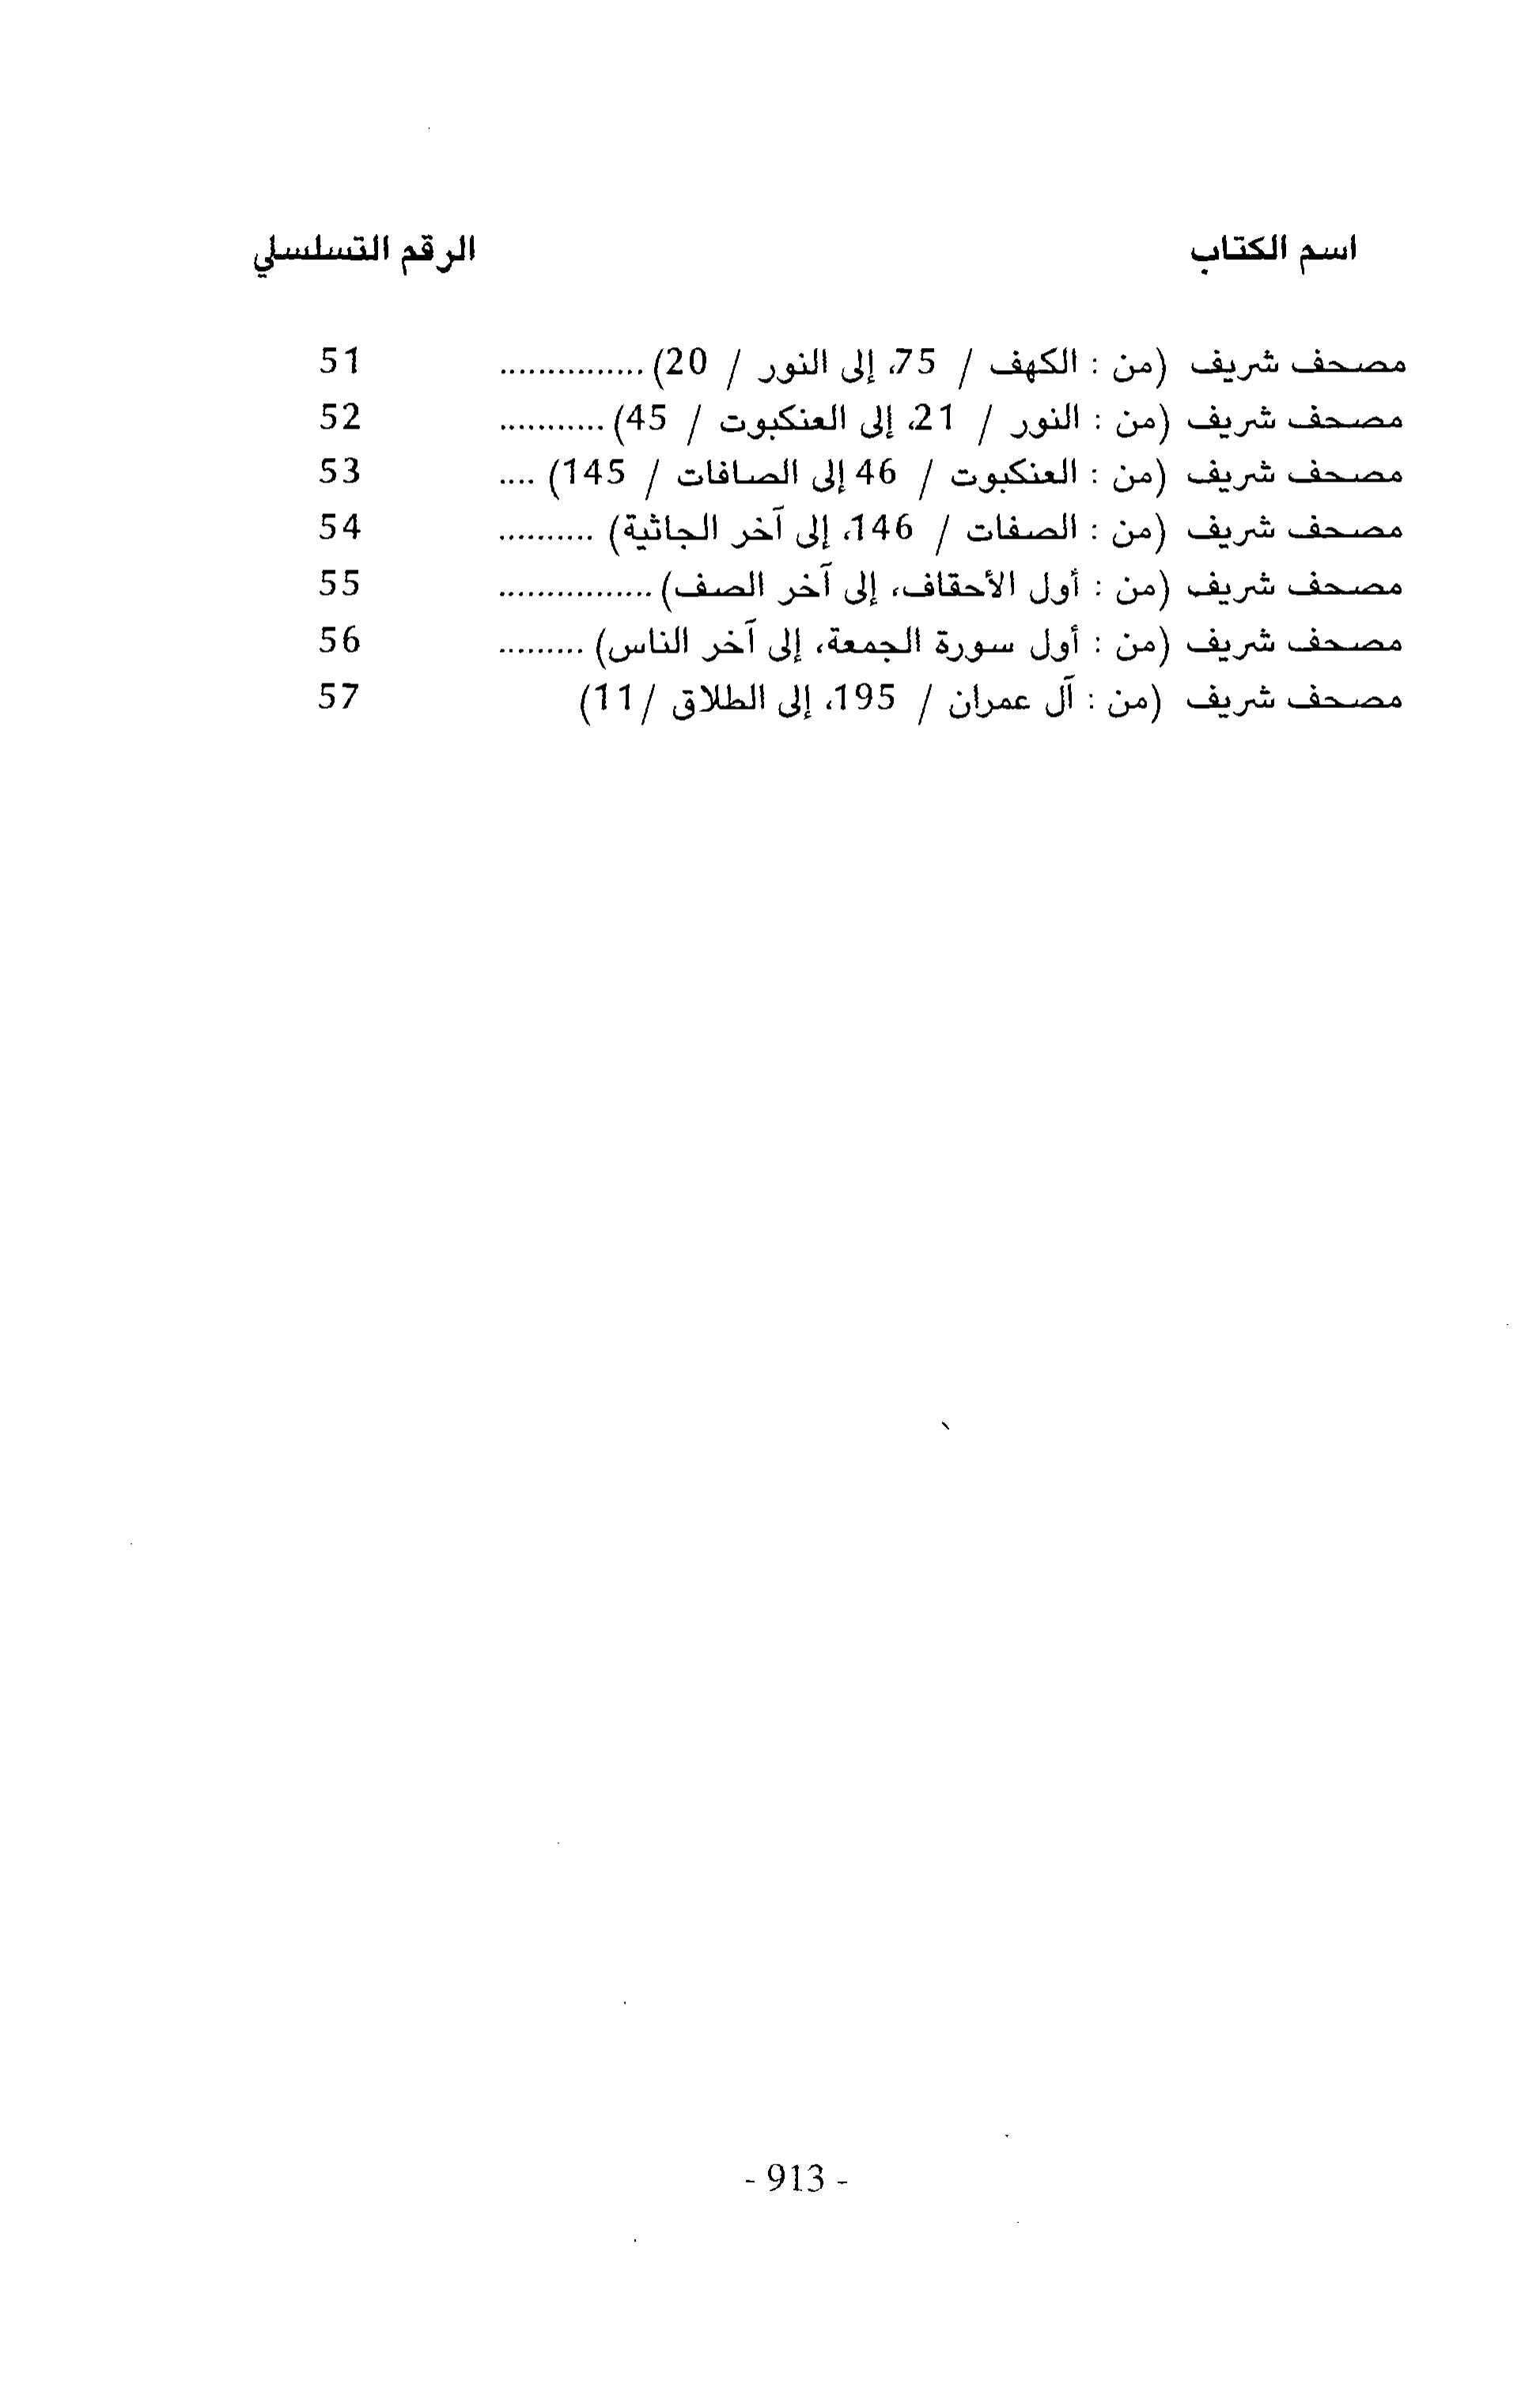 اسم الكتاب الرقم التسلسلي
مصحف شريف (من : الكهف / 75، إلى النور / 20) ............... 51
مصحف شريف (من : النور / 21، إلى العنكبوت / 45) ........... 52
مصحف شريف (من : العنكبوت / 46 إلى الصافات / 145) .... 53
مصحف شريف (من : الصفات / 146، إلى آخر الجاثية) .......... 54
مصحف شريف (من : أول الأحقاف، إلى آخر الصف) ................ 55
مصحف شريف (من : أول سورة الجمعة، إلى آخر الناس) ......... 56
مصحف شريف (من : آل عمران / 195، إلى الطلاق /11) 57
- 913 -